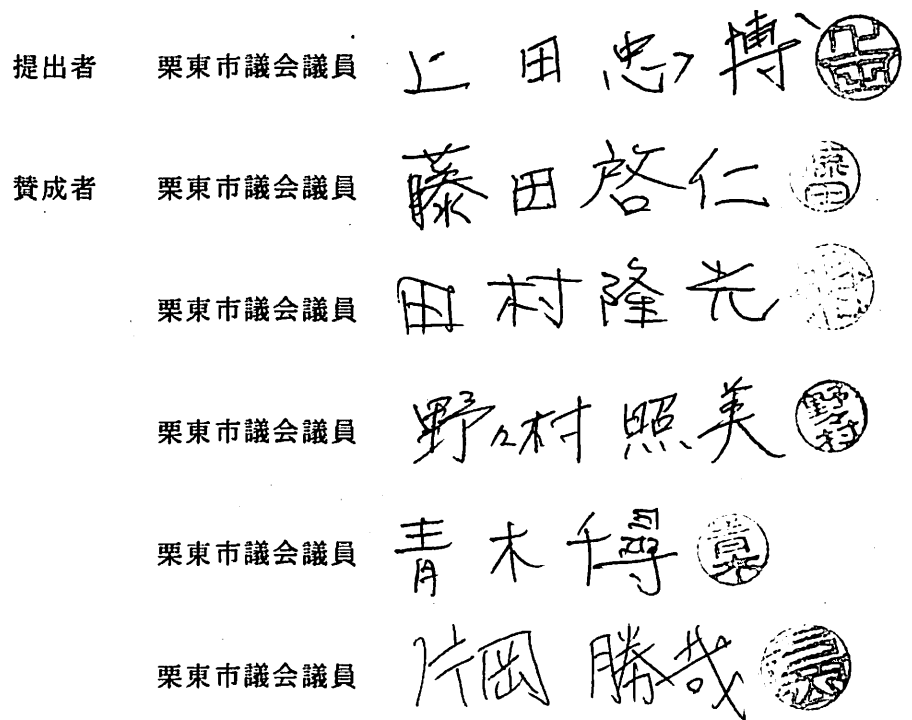 提出者 栗東市議会議員 上田忠博
賛成者 栗東市議会議員 藤田啓仁 藤田
栗東市議会議員 田村隆光
栗東市議会議員 野々村照美 野々村
栗東市議会議員 青木千尋 青木
栗東市議会議員 片岡勝哉